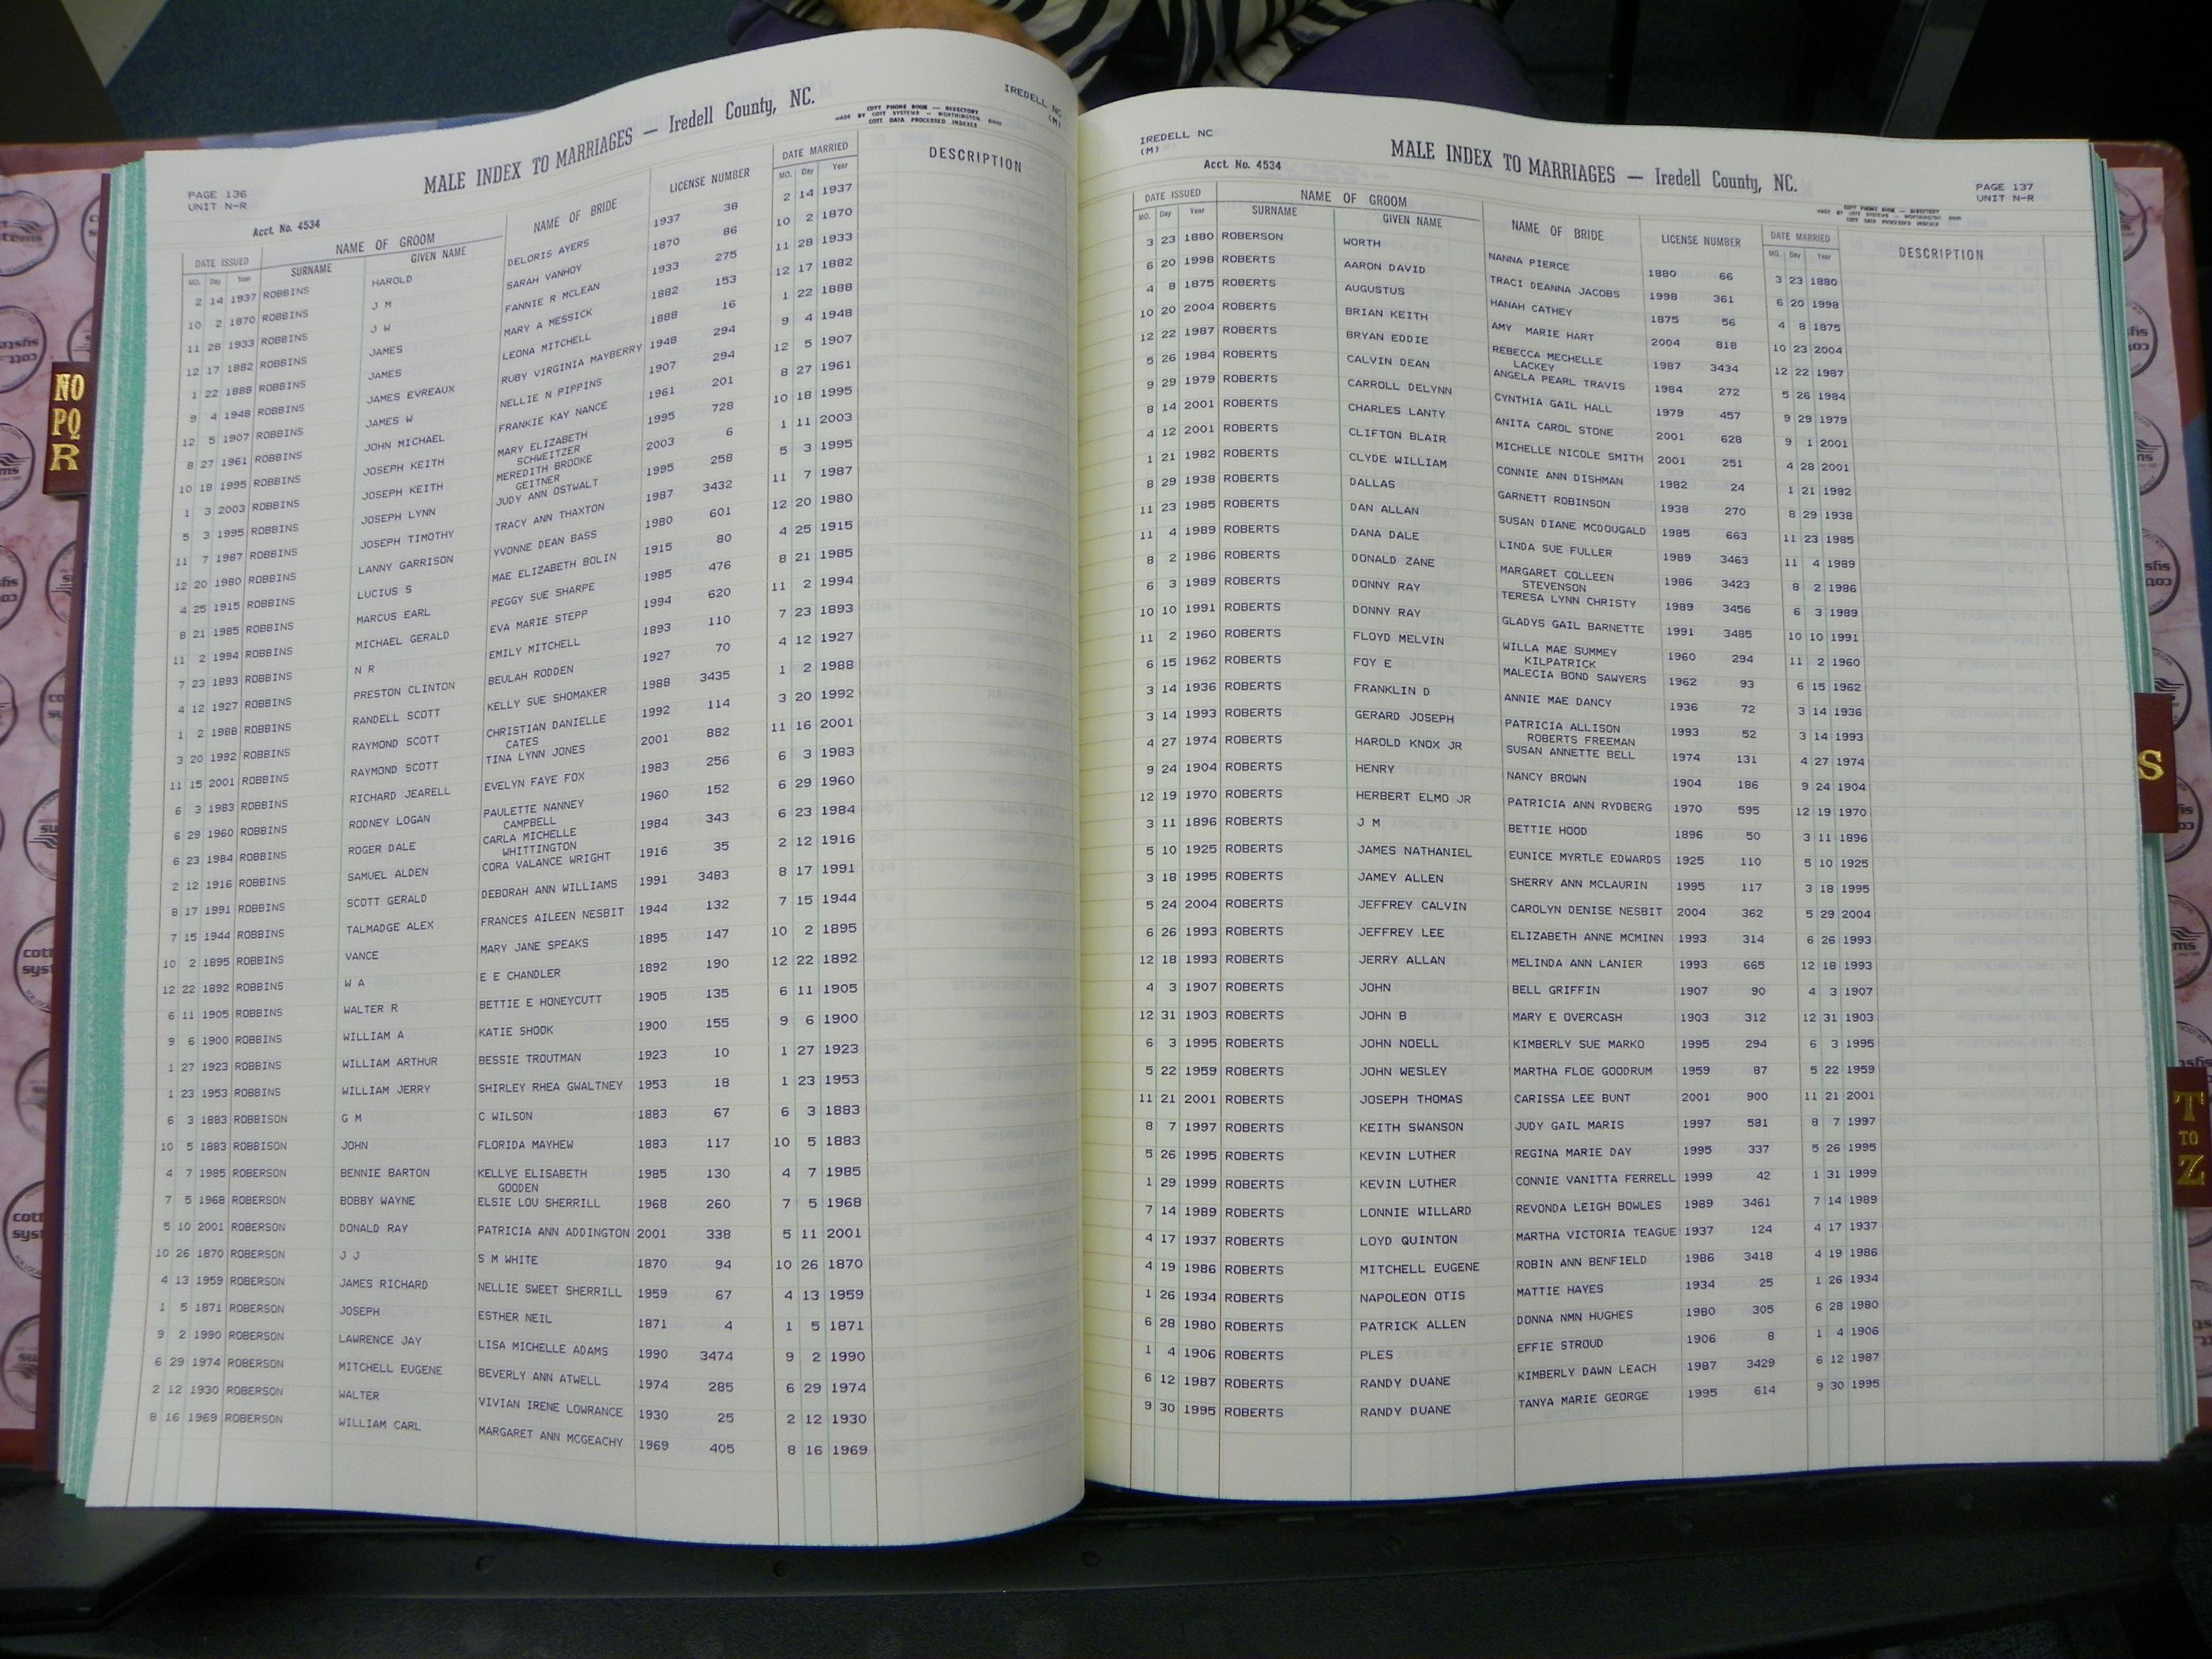 PAGE 136
UNIT N-R
Acct. No. 4534
MALE INDEX TO MARRIAGES — Iredell County, NC.
COTT PHONE BOOK — DIRECTORY
MADE BY COTT SYSTEMS — WORTHINGTON, OHIO
COTT DATA PROCESSED INDEXES
IREDELL NC
(M)
DATE ISSUED NAME OF GROOM NAME OF BRIDE LICENSE NUMBER DATE MARRIED DESCRIPTION
MO. Day Year SURNAME GIVEN NAME MO. Day Year
2 14 1937 ROBBINS HAROLD DELORIS AYERS 1937 38 2 14 1937
10 2 1870 ROBBINS J M SARAH VANHOY 1870 86 10 2 1870
11 28 1933 ROBBINS J W FANNIE R MCLEAN 1933 275 11 28 1933
12 17 1882 ROBBINS JAMES MARY A MESSICK 1882 153 12 17 1882
1 22 1888 ROBBINS JAMES LEONA MITCHELL 1888 16 1 22 1888
9 4 1948 ROBBINS JAMES EVREAUX RUBY VIRGINIA MAYBERRY 1948 294 9 4 1948
12 5 1907 ROBBINS JAMES W NELLIE N PIPPINS 1907 294 12 5 1907
8 27 1961 ROBBINS JOHN MICHAEL FRANKIE KAY NANCE 1961 201 8 27 1961
10 18 1995 ROBBINS JOSEPH KEITH MARY ELIZABETH 1995 728 10 18 1995
SCHWEITZER
1 3 2003 ROBBINS JOSEPH KEITH MEREDITH BROOKE 2003 6 1 11 2003
GEITNER
5 3 1995 ROBBINS JOSEPH LYNN JUDY ANN OSTWALT 1995 258 5 3 1995
11 7 1987 ROBBINS JOSEPH TIMOTHY TRACY ANN THAXTON 1987 3432 11 7 1987
12 20 1980 ROBBINS LANNY GARRISON YVONNE DEAN BASS 1980 601 12 20 1980
4 25 1915 ROBBINS LUCIUS S MAE ELIZABETH BOLIN 1915 80 4 25 1915
8 21 1985 ROBBINS MARCUS EARL PEGGY SUE SHARPE 1985 476 8 21 1985
11 2 1994 ROBBINS MICHAEL GERALD EVA MARIE STEPP 1994 620 11 2 1994
7 23 1893 ROBBINS N R EMILY MITCHELL 1893 110 7 23 1893
4 12 1927 ROBBINS PRESTON CLINTON BEULAH RODDEN 1927 70 4 12 1927
1 2 1988 ROBBINS RANDELL SCOTT KELLY SUE SHOMAKER 1988 3435 1 2 1988
3 20 1992 ROBBINS RAYMOND SCOTT CHRISTIAN DANIELLE 1992 114 3 20 1992
CATES
11 15 2001 ROBBINS RAYMOND SCOTT TINA LYNN JONES 2001 882 11 16 2001
6 3 1983 ROBBINS RICHARD JEARELL EVELYN FAYE FOX 1983 256 6 3 1983
6 29 1960 ROBBINS RODNEY LOGAN PAULETTE NANNEY 1960 152 6 29 1960
CAMPBELL
6 23 1984 ROBBINS ROGER DALE CARLA MICHELLE 1984 343 6 23 1984
WHITTINGTON
2 12 1916 ROBBINS SAMUEL ALDEN CORA VALANCE WRIGHT 1916 35 2 12 1916
8 17 1991 ROBBINS SCOTT GERALD DEBORAH ANN WILLIAMS 1991 3483 8 17 1991
7 15 1944 ROBBINS TALMADGE ALEX FRANCES AILEEN NESBIT 1944 132 7 15 1944
10 2 1895 ROBBINS VANCE MARY JANE SPEAKS 1895 147 10 2 1895
12 22 1892 ROBBINS W A E E CHANDLER 1892 190 12 22 1892
6 11 1905 ROBBINS WALTER R BETTIE E HONEYCUTT 1905 135 6 11 1905
9 6 1900 ROBBINS WILLIAM A KATIE SHOOK 1900 155 9 6 1900
1 27 1923 ROBBINS WILLIAM ARTHUR BESSIE TROUTMAN 1923 10 1 27 1923
1 23 1953 ROBBINS WILLIAM JERRY SHIRLEY RHEA GWALTNEY 1953 18 1 23 1953
6 3 1883 ROBBISON G M C WILSON 1883 67 6 3 1883
10 5 1883 ROBBISON JOHN FLORIDA MAYHEW 1883 117 10 5 1883
4 7 1985 ROBERSON BENNIE BARTON KELLYE ELISABETH 1985 130 4 7 1985
GOODEN
7 5 1968 ROBERSON BOBBY WAYNE ELSIE LOU SHERRILL 1968 260 7 5 1968
5 10 2001 ROBERSON DONALD RAY PATRICIA ANN ADDINGTON 2001 338 5 11 2001
10 26 1870 ROBERSON J J S M WHITE 1870 94 10 26 1870
4 13 1959 ROBERSON JAMES RICHARD NELLIE SWEET SHERRILL 1959 67 4 13 1959
1 5 1871 ROBERSON JOSEPH ESTHER NEIL 1871 4 1 5 1871
9 2 1990 ROBERSON LAWRENCE JAY LISA MICHELLE ADAMS 1990 3474 9 2 1990
6 29 1974 ROBERSON MITCHELL EUGENE BEVERLY ANN ATWELL 1974 285 6 29 1974
2 12 1930 ROBERSON WALTER VIVIAN IRENE LOWRANCE 1930 25 2 12 1930
8 16 1969 ROBERSON WILLIAM CARL MARGARET ANN MCGEACHY 1969 405 8 16 1969
IREDELL NC
(M)
Acct. No. 4534
MALE INDEX TO MARRIAGES — Iredell County, NC.
PAGE 137
UNIT N-R
COTT PHONE BOOK — DIRECTORY
MADE BY COTT SYSTEMS — WORTHINGTON, OHIO
COTT DATA PROCESSED INDEXES
DATE ISSUED NAME OF GROOM NAME OF BRIDE LICENSE NUMBER DATE MARRIED DESCRIPTION
MO. Day Year SURNAME GIVEN NAME MO. Day Year
3 23 1880 ROBERSON WORTH NANNA PIERCE 1880 66 3 23 1880
6 20 1998 ROBERTS AARON DAVID TRACI DEANNA JACOBS 1998 361 6 20 1998
4 8 1875 ROBERTS AUGUSTUS HANAH CATHEY 1875 56 4 8 1875
10 20 2004 ROBERTS BRIAN KEITH AMY MARIE HART 2004 818 10 23 2004
12 22 1987 ROBERTS BRYAN EDDIE REBECCA MECHELLE 1987 3434 12 22 1987
LACKEY
5 26 1984 ROBERTS CALVIN DEAN ANGELA PEARL TRAVIS 1984 272 5 26 1984
9 29 1979 ROBERTS CARROLL DELYNN CYNTHIA GAIL HALL 1979 457 9 29 1979
8 14 2001 ROBERTS CHARLES LANTY ANITA CAROL STONE 2001 628 9 1 2001
4 12 2001 ROBERTS CLIFTON BLAIR MICHELLE NICOLE SMITH 2001 251 4 28 2001
1 21 1982 ROBERTS CLYDE WILLIAM CONNIE ANN DISHMAN 1982 24 1 21 1982
8 29 1938 ROBERTS DALLAS GARNETT ROBINSON 1938 270 8 29 1938
11 23 1985 ROBERTS DAN ALLAN SUSAN DIANE MCDOUGALD 1985 663 11 23 1985
11 4 1989 ROBERTS DANA DALE LINDA SUE FULLER 1989 3463 11 4 1989
8 2 1986 ROBERTS DONALD ZANE MARGARET COLLEEN 1986 3423 8 2 1986
STEVENSON
6 3 1989 ROBERTS DONNY RAY TERESA LYNN CHRISTY 1989 3456 6 3 1989
10 10 1991 ROBERTS DONNY RAY GLADYS GAIL BARNETTE 1991 3485 10 10 1991
11 2 1960 ROBERTS FLOYD MELVIN WILLA MAE SUMMEY 1960 294 11 2 1960
KILPATRICK
6 15 1962 ROBERTS FOY E MALECIA BOND SAWYERS 1962 93 6 15 1962
3 14 1936 ROBERTS FRANKLIN D ANNIE MAE DANCY 1936 72 3 14 1936
3 14 1993 ROBERTS GERARD JOSEPH PATRICIA ALLISON 1993 52 3 14 1993
ROBERTS FREEMAN
4 27 1974 ROBERTS HAROLD KNOX JR SUSAN ANNETTE BELL 1974 131 4 27 1974
9 24 1904 ROBERTS HENRY NANCY BROWN 1904 186 9 24 1904
12 19 1970 ROBERTS HERBERT ELMO JR PATRICIA ANN RYDBERG 1970 595 12 19 1970
3 11 1896 ROBERTS J M BETTIE HOOD 1896 50 3 11 1896
5 10 1925 ROBERTS JAMES NATHANIEL EUNICE MYRTLE EDWARDS 1925 110 5 10 1925
3 18 1995 ROBERTS JAMEY ALLEN SHERRY ANN MCLAURIN 1995 117 3 18 1995
5 24 2004 ROBERTS JEFFREY CALVIN CAROLYN DENISE NESBIT 2004 362 5 29 2004
6 26 1993 ROBERTS JEFFREY LEE ELIZABETH ANNE MCMINN 1993 314 6 26 1993
12 18 1993 ROBERTS JERRY ALLAN MELINDA ANN LANIER 1993 665 12 18 1993
4 3 1907 ROBERTS JOHN BELL GRIFFIN 1907 90 4 3 1907
12 31 1903 ROBERTS JOHN B MARY E OVERCASH 1903 312 12 31 1903
6 3 1995 ROBERTS JOHN NOELL KIMBERLY SUE MARKO 1995 294 6 3 1995
5 22 1959 ROBERTS JOHN WESLEY MARTHA FLOE GOODRUM 1959 87 5 22 1959
11 21 2001 ROBERTS JOSEPH THOMAS CARISSA LEE BUNT 2001 900 11 21 2001
8 7 1997 ROBERTS KEITH SWANSON JUDY GAIL MARIS 1997 581 8 7 1997
5 26 1995 ROBERTS KEVIN LUTHER REGINA MARIE DAY 1995 337 5 26 1995
1 29 1999 ROBERTS KEVIN LUTHER CONNIE VANITTA FERRELL 1999 42 1 31 1999
7 14 1989 ROBERTS LONNIE WILLARD REVONDA LEIGH BOWLES 1989 3461 7 14 1989
4 17 1937 ROBERTS LOYD QUINTON MARTHA VICTORIA TEAGUE 1937 124 4 17 1937
4 19 1986 ROBERTS MITCHELL EUGENE ROBIN ANN BENFIELD 1986 3418 4 19 1986
1 26 1934 ROBERTS NAPOLEON OTIS MATTIE HAYES 1934 25 1 26 1934
6 28 1980 ROBERTS PATRICK ALLEN DONNA NMN HUGHES 1980 305 6 28 1980
1 4 1906 ROBERTS PLES EFFIE STROUD 1906 8 1 4 1906
6 12 1987 ROBERTS RANDY DUANE KIMBERLY DAWN LEACH 1987 3429 6 12 1987
9 30 1995 ROBERTS RANDY DUANE TANYA MARIE GEORGE 1995 614 9 30 1995
NO
PQ
R
S
T
TO
Z